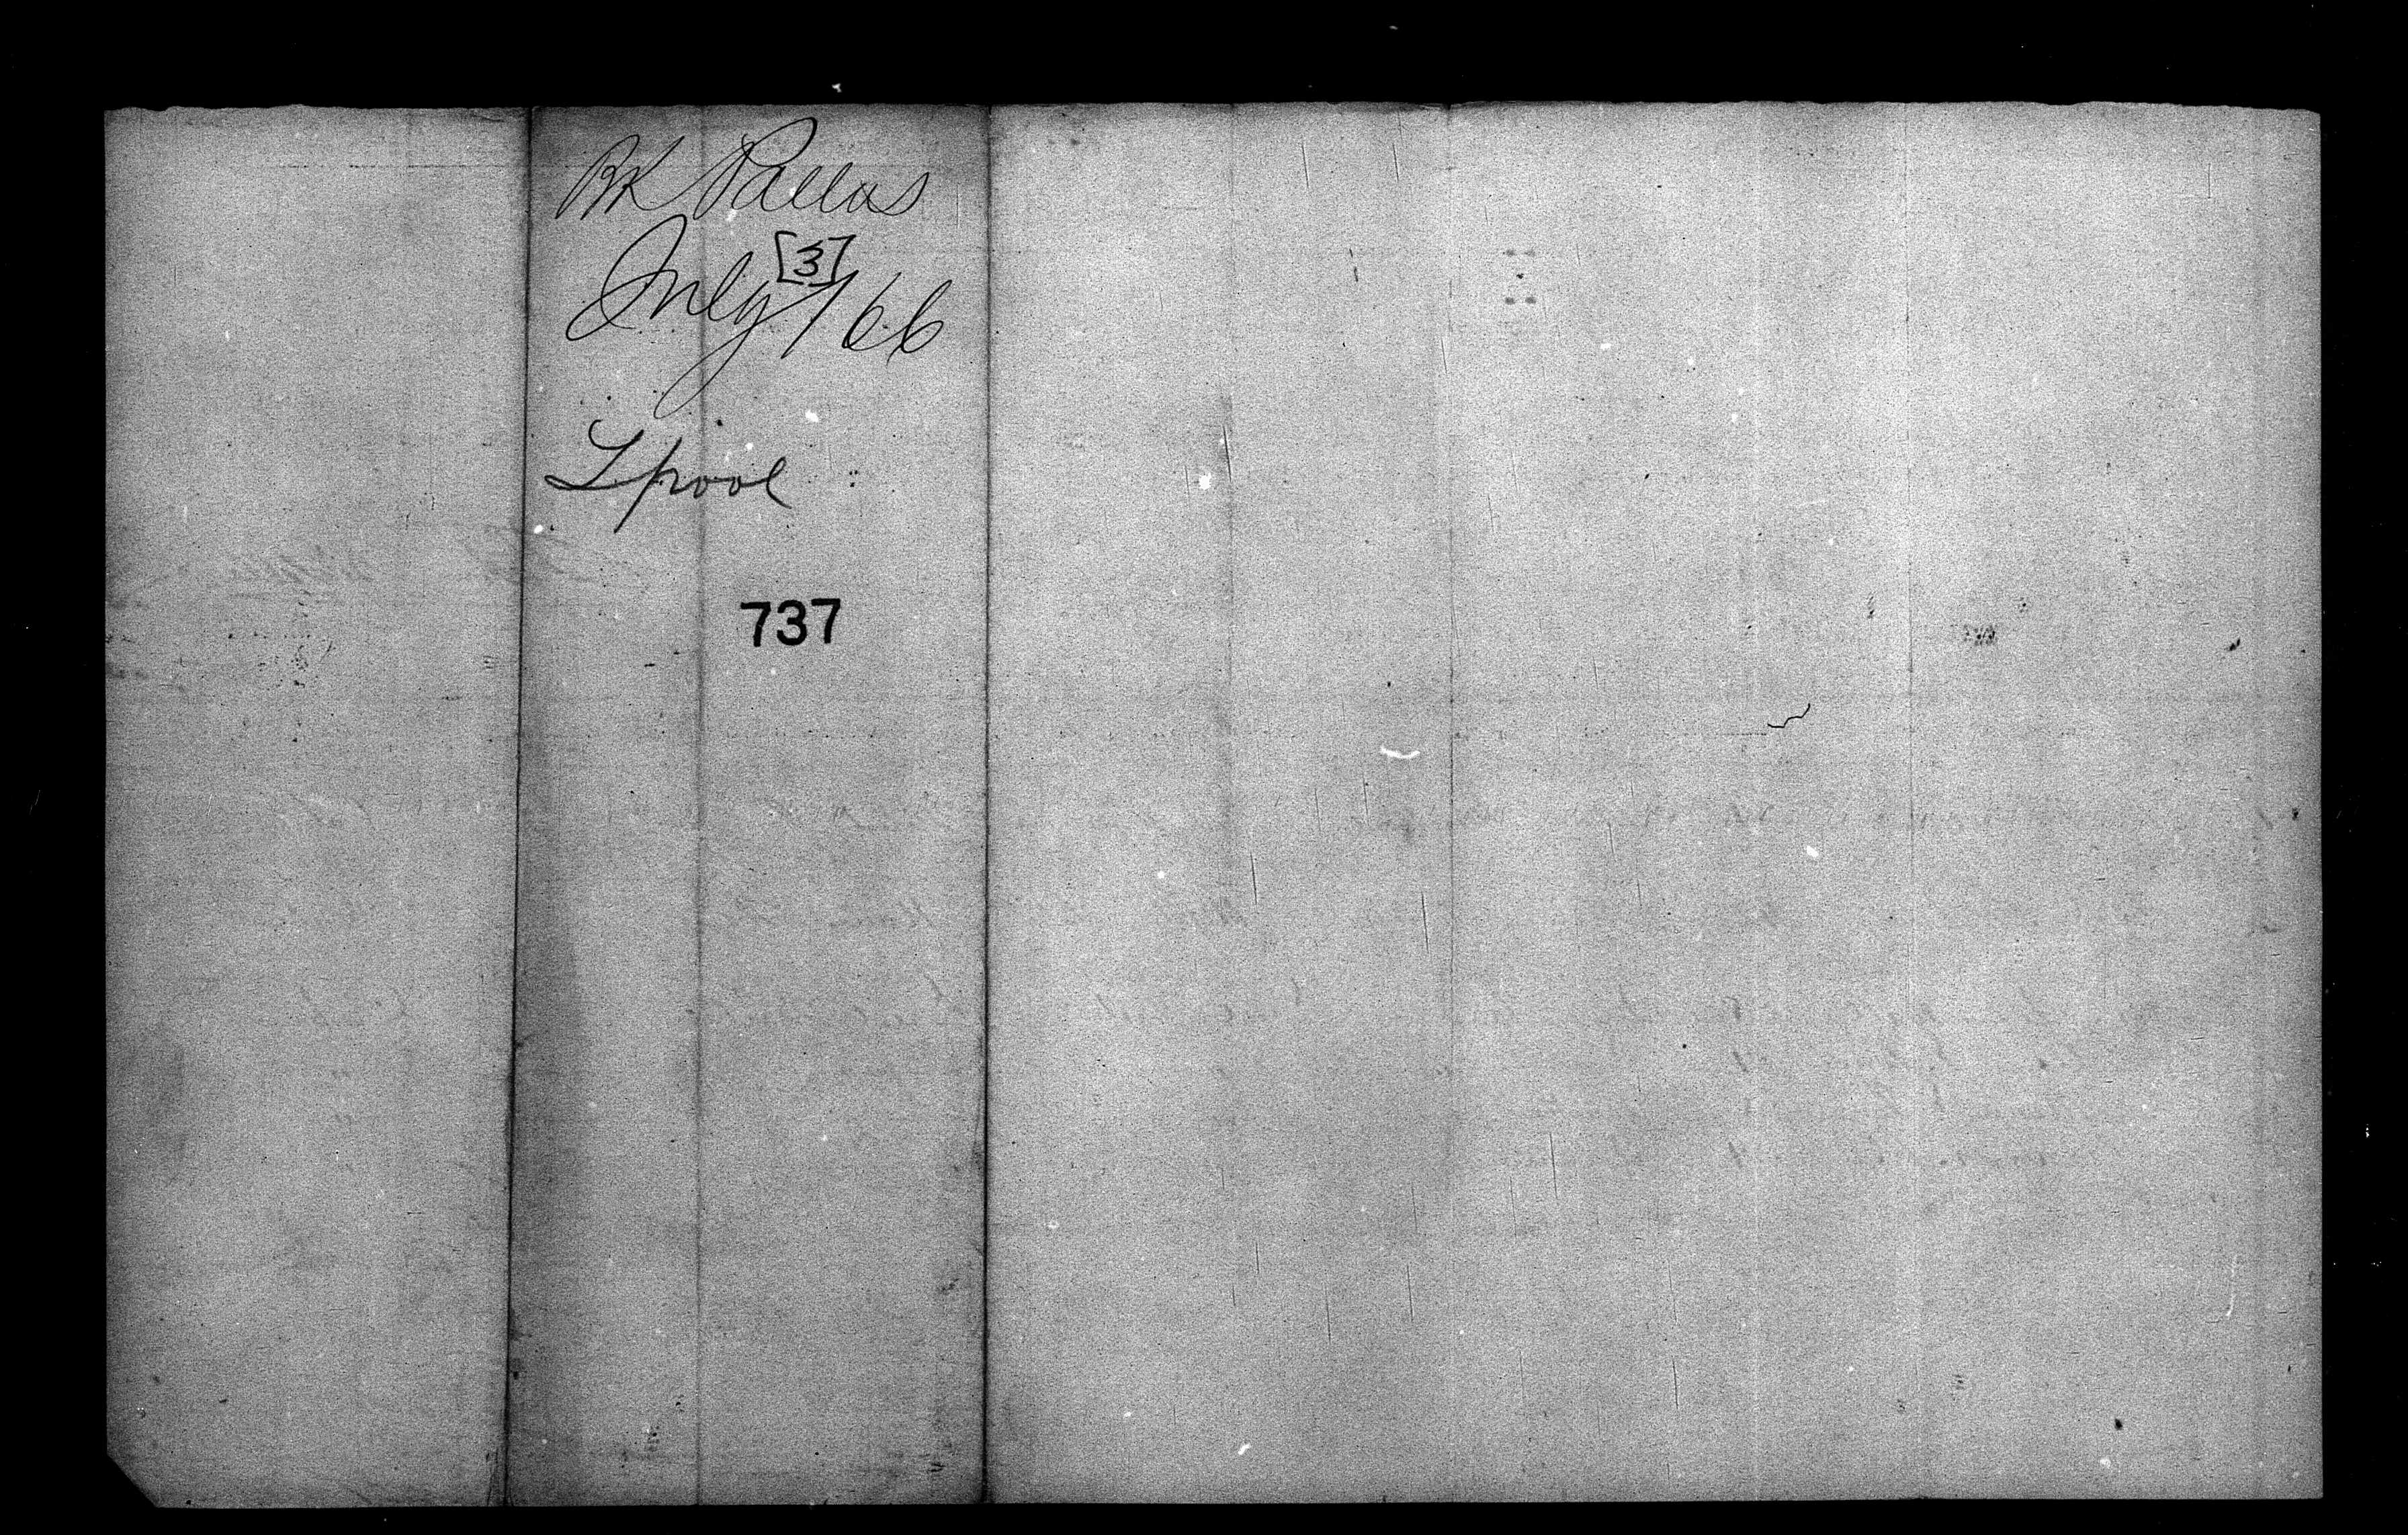 Bk Pallas
July [3] / 66
Lpool
737